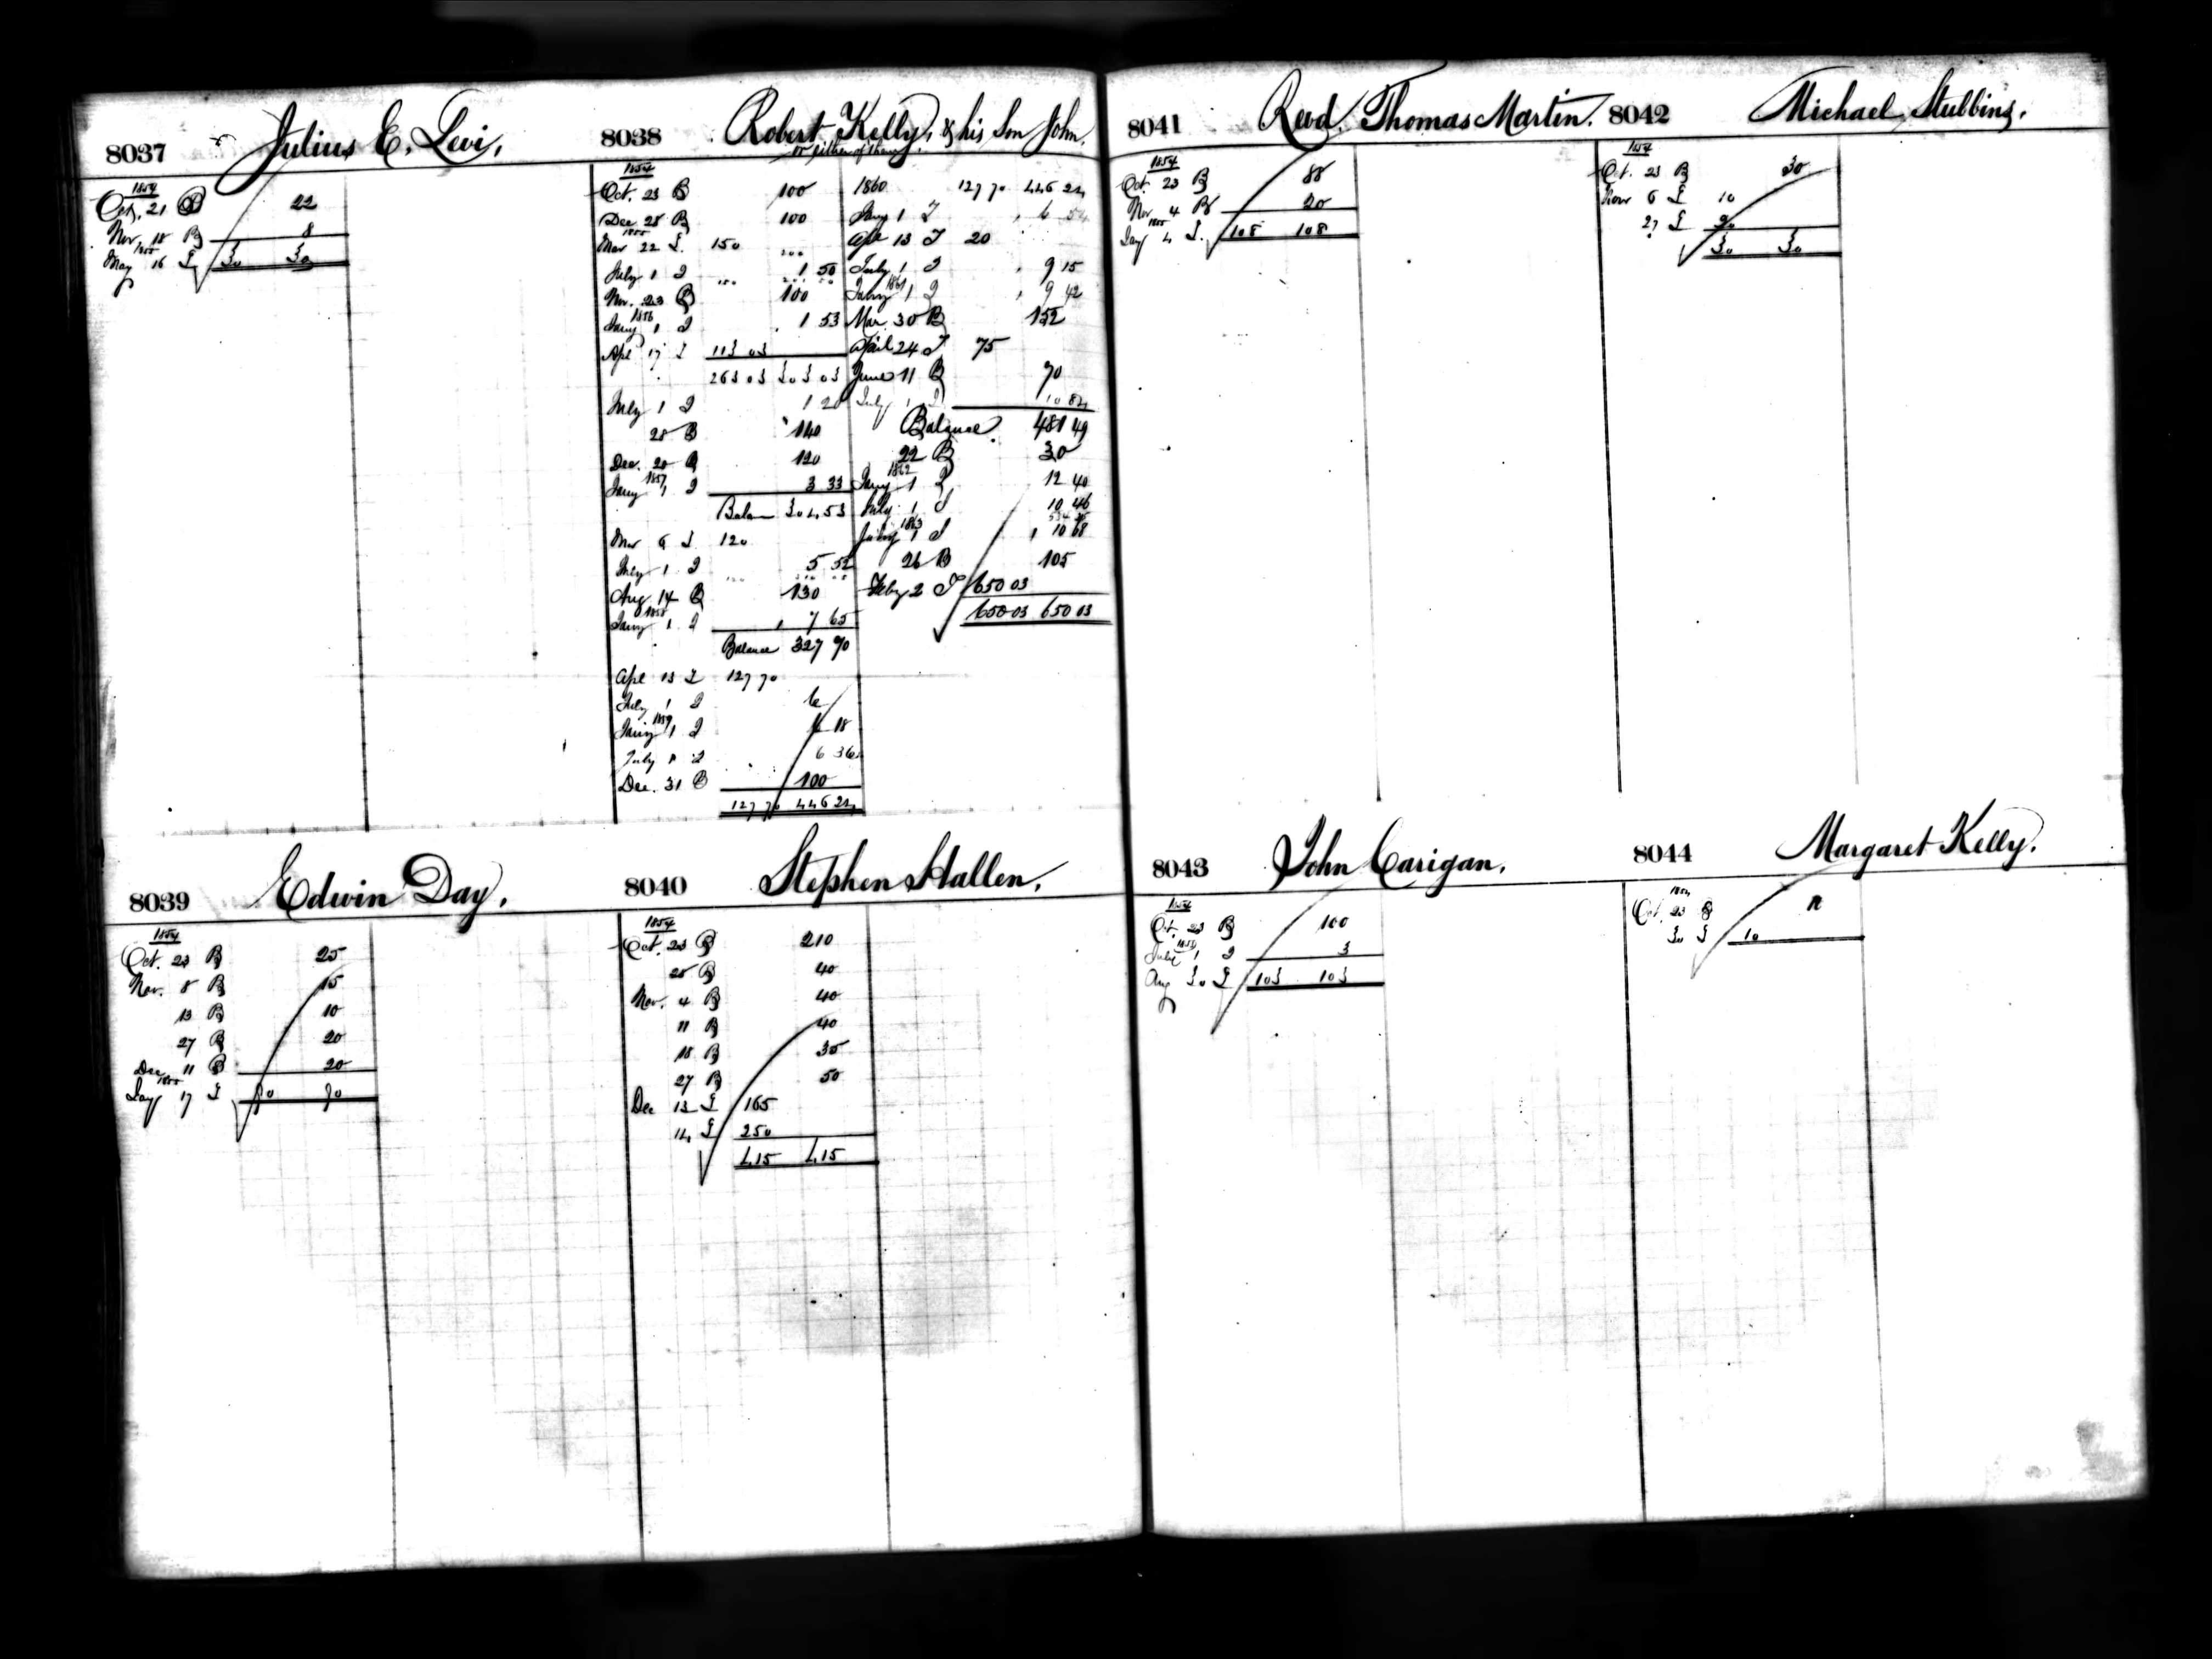 8037 Julius E. Levi,
1854
Oct. 21 B 22
Nov. 18 B 8
1855
May 16 I 30 30
8038 Robert Kelly, & his Son John.
or either of them
1854
Oct. 23 B 100
Dec 28 B 100
1855
Mar 22 I 150
July 1 I 1 50
Nov. 23 B 100
1856
Jany 1 I 1 53
Apl 17 I 113 03
263 03 303 03
July 1 I 1 20
28 B 140
Dec. 20 B 120
1857
Jany 1 I 3 33
Balan 304 53
Mar 6 I 120
July 1 I 5 52
Aug 14 B 130
1858
Jany 1 I 7 65
Balance 327 70
Apl 13 I 127 70
July 1 I 6
1859
Jany 1 I 6 18
July 1 I 6 36
Dec. 31 B 100
127 70 446 24
1860 127 70 446 24
Jany 1 I 6 54
Apl 13 I 20
July 1 I 9 15
1861
Jany 1 I 9 42
Mar. 30 B 152
April 24 I 75
June 11 B 70
July 1 I 10 84
Balance 481 49
22 B 30
1862
Jany 1 I 12 40
July 1 I 10 46
1863
Jany 1 I 10 68
26 B 105
Feby 2 I 650 03
650 03 650 03
8039 Edwin Day,
1854
Oct. 23 B 25
Nov. 8 B 15
13 B 10
27 B 20
Dec 11 B 20
1855
Jay 17 I 90 90
8040 Stephen Hallen,
1854
Oct. 23 B 210
28 B 40
Nov. 4 B 40
11 B 40
18 B 35
27 B 50
Dec 13 I 165
14 I 250
415 415
8041 Revd. Thomas Martin.
1854
Oct. 23 B 88
Nov. 4 B 20
1855
Jay 4 I. 108 108
8042 Michael Stubbing,
1854
Oct. 23 B 30
Nov 6 I 10
27 I 20
30 30
8043 John Carigan,
1854
Oct. 23 B 100
1855
July 1 I 3
Aug 30 I 103 103
8044 Margaret Kelly.
1854
Oct. 23 B 10
30 I 10